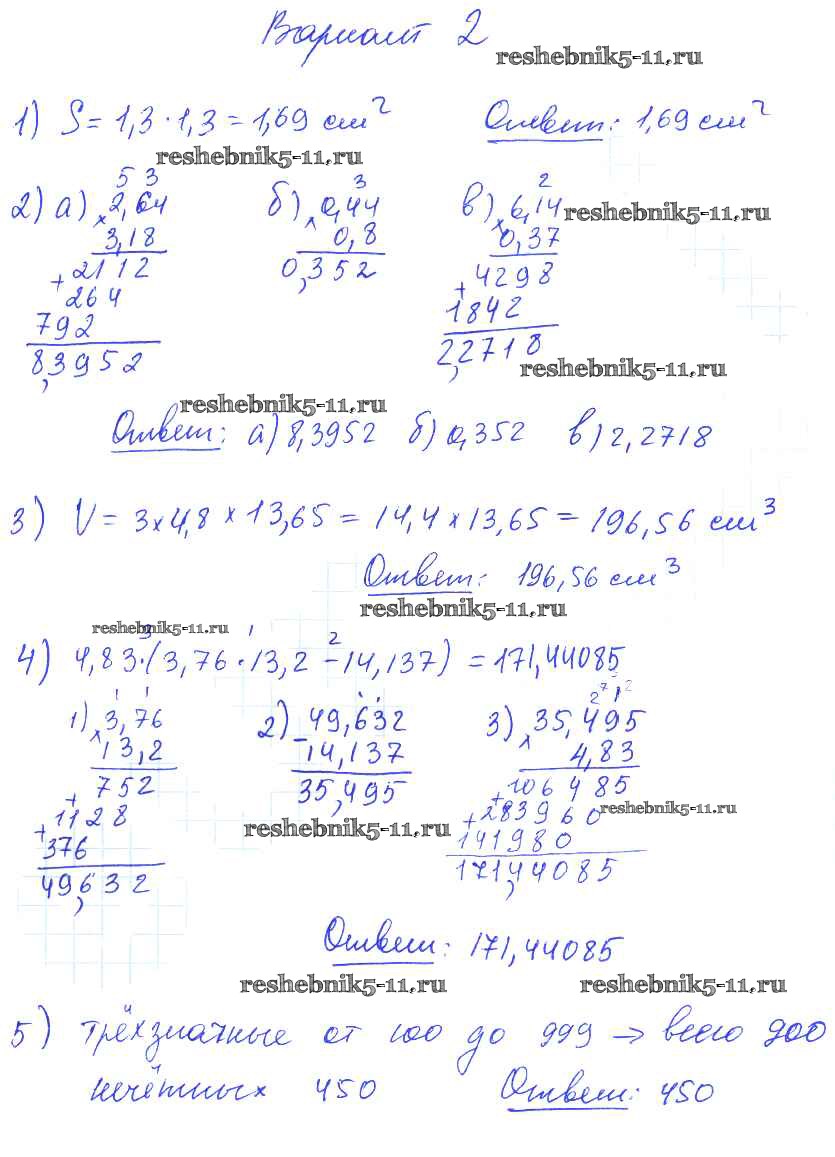 Вариант 2
reshebnik5-11.ru
1) S = 1,3 · 1,3 = 1,69 см² Ответ: 1,69 см²
reshebnik5-11.ru
5 3 3 2
2) а) × 2,64 б) × 0,44 в) × 6,14 reshebnik5-11.ru
3,18 0,8 0,37
+ 2112 0,352 + 4298
264 1842
792 2,2718
8,3952 reshebnik5-11.ru
reshebnik5-11.ru
Ответ: а) 8,3952 б) 0,352 в) 2,2718
3) V = 3 × 4,8 × 13,65 = 14,4 × 13,65 = 196,56 см³
Ответ: 196,56 см³
reshebnik5-11.ru
reshebnik5-11.ru
3 1 2
4) 4,83 · (3,76 · 13,2 − 14,137) = 171,44085
1) × 3,76 2) − 49,632 3) × 35,495
13,2 14,137 4,83
+ 752 35,495 + 106485
+ 1128 + 283960 reshebnik5-11.ru
376 reshebnik5-11.ru 141980
49,632 171,44085
Ответ: 171,44085
reshebnik5-11.ru reshebnik5-11.ru
5) трёхзначные от 100 до 999 → всего 900
нечётных 450 Ответ: 450